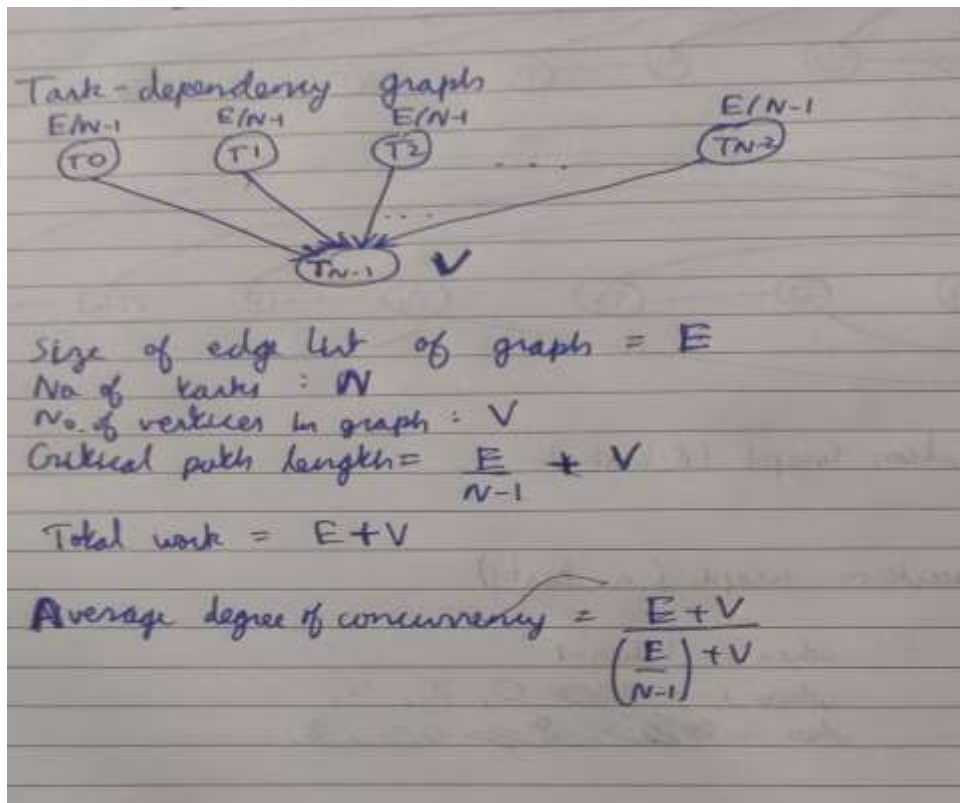 Task-dependency graph
E/N-1 E/N-1 E/N-1 E/N-1
T0 T1 T2 .... TN-2
....
TN-1 V
Size of edge list of graph = E
No of tasks : N
No. of vertices in graph : V
Critical path length = E/N-1 + V
Total work = E+V
Average degree of concurrency = E+V/(E/N-1)+V